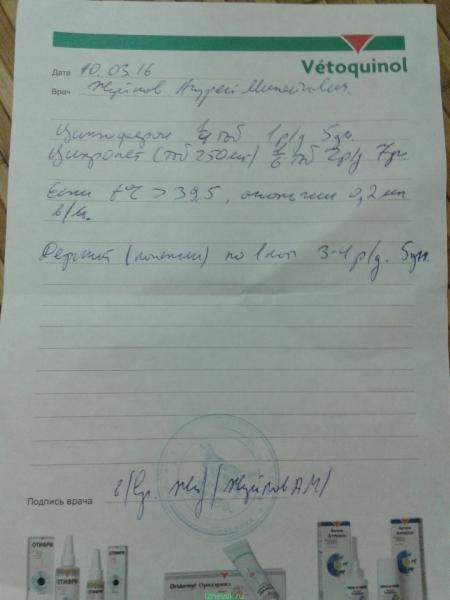 Vétoquinol
Дата 10.03.16
Врач Жуйков Андрей Михайлович
Циклоферон 1/4 таб 1р/д 5дн.
Ципролет (таб 250мг) 1/6 таб 2р/д 7дн
Если t°C > 39,5, 0,2 мл
в/м.
по 1 кап 3-4 р/д. 5дн.
Подпись врача в/вр. /Жуйков АМ/
ОТИФРИ
ОТИФРИ